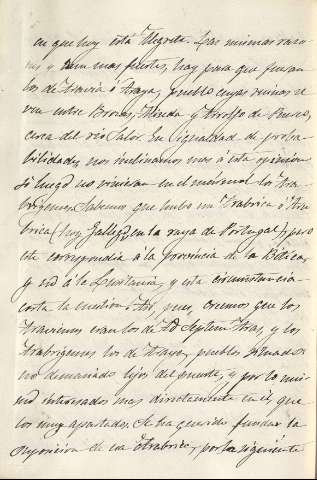 en que hoy está Alegrete. Las mismas razo-
nes y aun mas fuertes, hay para que fueran
los de Aravia ó Araya, pueblo cuyas ruinas se
ven entre Brozas, y Arroyo de Puerco,
cerca del rio Salor. En igualdad de proba-
bilidades, nos inclinamos mas á esta opinion
si luego no vinieran en el mármol los Ara-
brigenses. Sabemos que hubo un Arabrica ó
brica (hoy en la raya de Portugal, pero
este correspondia á la provincia de la Bética,
y no á la Lusitania, y esta circunstancia
corta la cuestion. Así, pues, creemos que los
eran los de Ad Septem Aras, y los
Arabrigenses los de Araya, pueblos situados
no demasiado lejos del puente, y por lo mis-
mo interesados mas directamente en él, que
los muy apartados. Se ha querido fundar la
de una por la siguiente